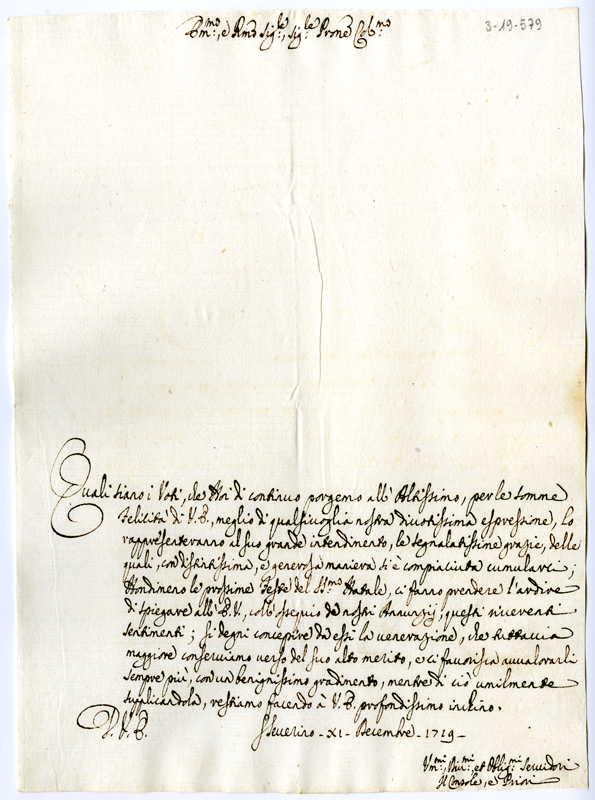 Em.mo, e Rmo Sig.le, Sig.le Prone Col.mo
3-19-579
Quali siano i Voti, che Noi di continuo porgemo all' Altissimo, per le somme
felicità di V.E., meglio di qualsivoglia nostra divotissima espressione, lo
rappresenteranno al suo grande intendimento, le segnalatissime grazie, delle
quali, con distintissima, e generosa maniera si è compiaciuta cumularci;
Nondimeno le prossime Feste del SS.mo Natale, ci fanno prendere l'ardire
di spiegare all' E.V., coll' ossequio de nostri Annunzij, questi riverenti
sentimenti; Si degni concepire da essi la venerazione, che tuttavia
maggiore conserviamo verso del suo alto merito, e ci favorisca avvalorarli
sempre più, con un benignissimo gradimento, mentre di ciò umilmente
supplicandola, restiamo facendo à V.E. profondissimo inchino.
D.V.E.
S. Severino - XI - Decembre - 1719 -
Um.mi, Div.mi, et Oblig.mi Servidori
Il Console, e Priori